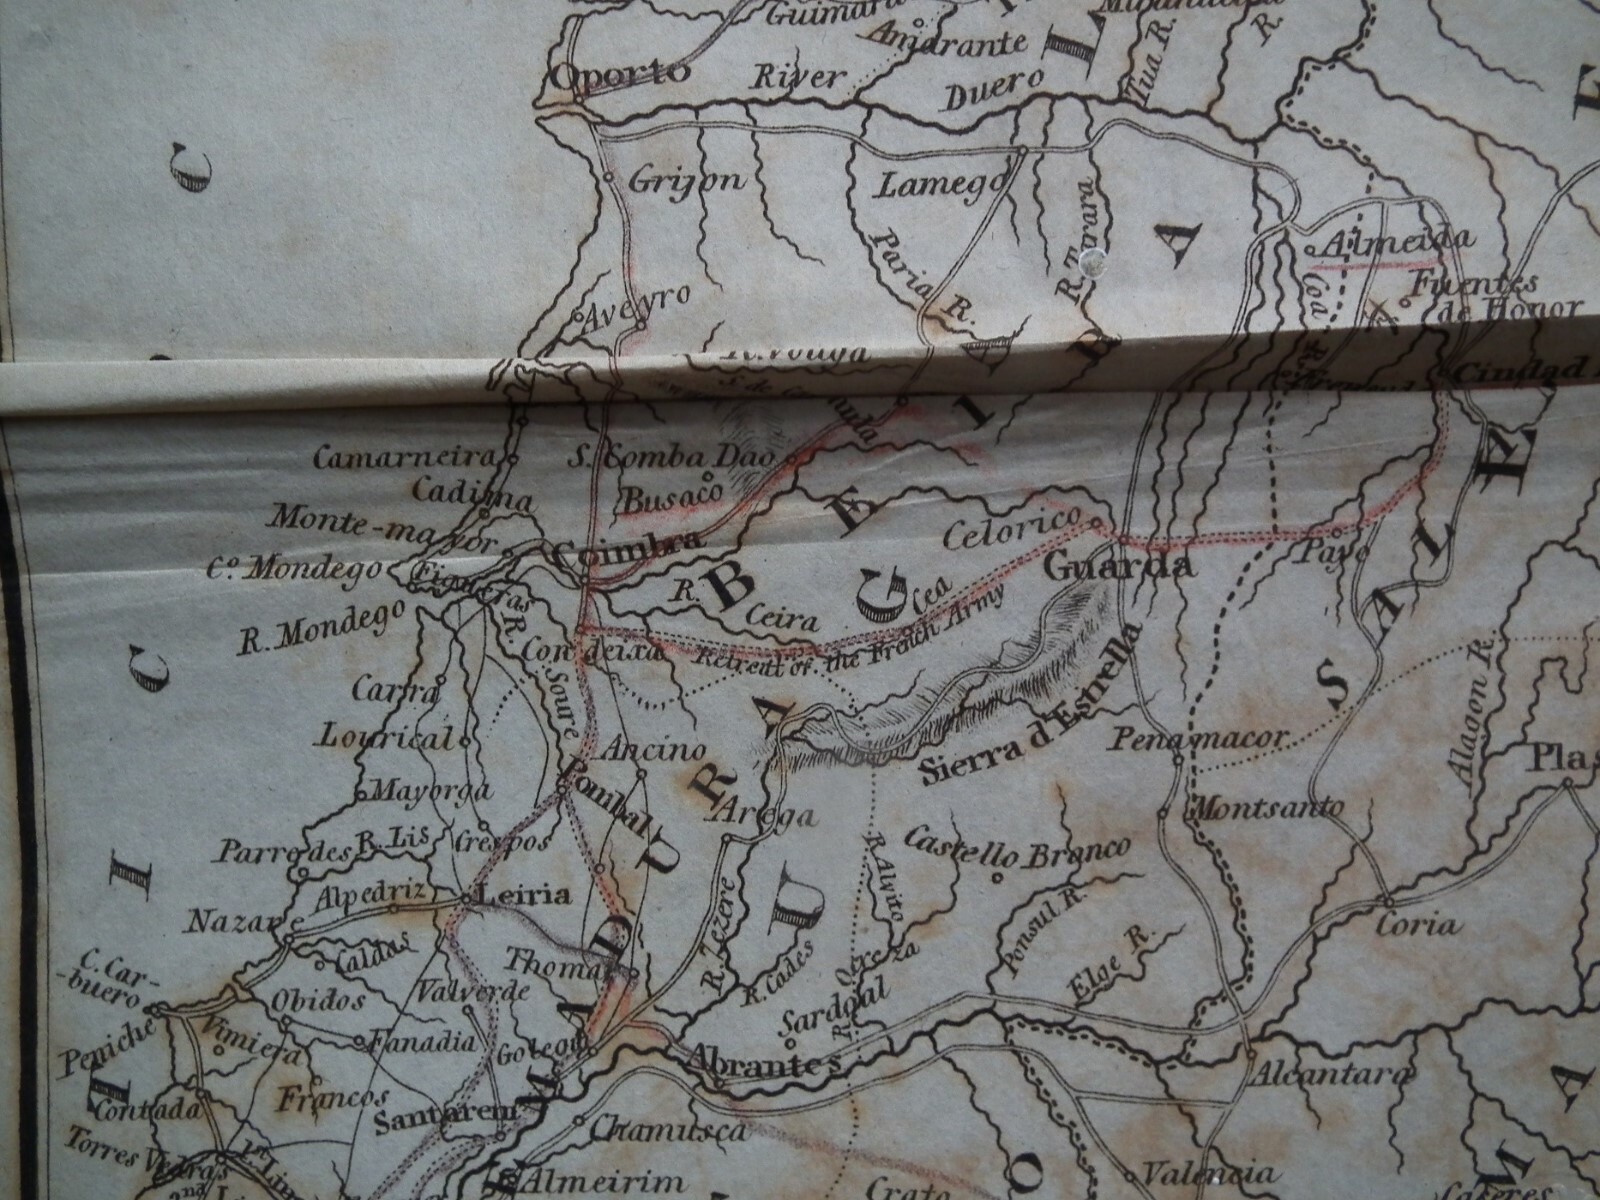 Guimara
Amarante
Oporto
River
Duero
Tua R.
R.
L
E
C
Grijon
Lamego
Paria R.
R. Tavara
A
Almeida
Coa R.
Fuentes
de Honor
Aveyro
R. Vouga
Ciudad
BEIRA
Camarneira
S. Comba Dao
Cadima
Busaco
Monte-mayor
Coimbra
Celorico
Guarda
Payo
Cº. Mondego
Figueras
R. Mondego
R. Ceira
Cea
Condeixa
Retreat of the French Army
R. Soure
Carra
Lourical
Ancino
Sierra d'Estrella
Penamacor
Alagon R.
Plas
Mayorga
Pombal
Arega
Montsanto
Parrodes
R. Lis
Crespos
Castello Branco
Alpedriz
Leiria
R. Alvito
Nazare
R. Tezere
Ponsul R.
Coria
Caldas
Thomar
R. Cades
Elge R.
C. Car-
-buero
Obidos
Valverde
Sardoal
Peniche
Vimiera
Fanadia
Golegon
Abrantes
Alcantara
Contada
Francos
Santarem
Chamusca
Torres Vedras
1st Lin
2nd Li
Almeirim
Crato
Valencia
ESTREMADURA
SALE